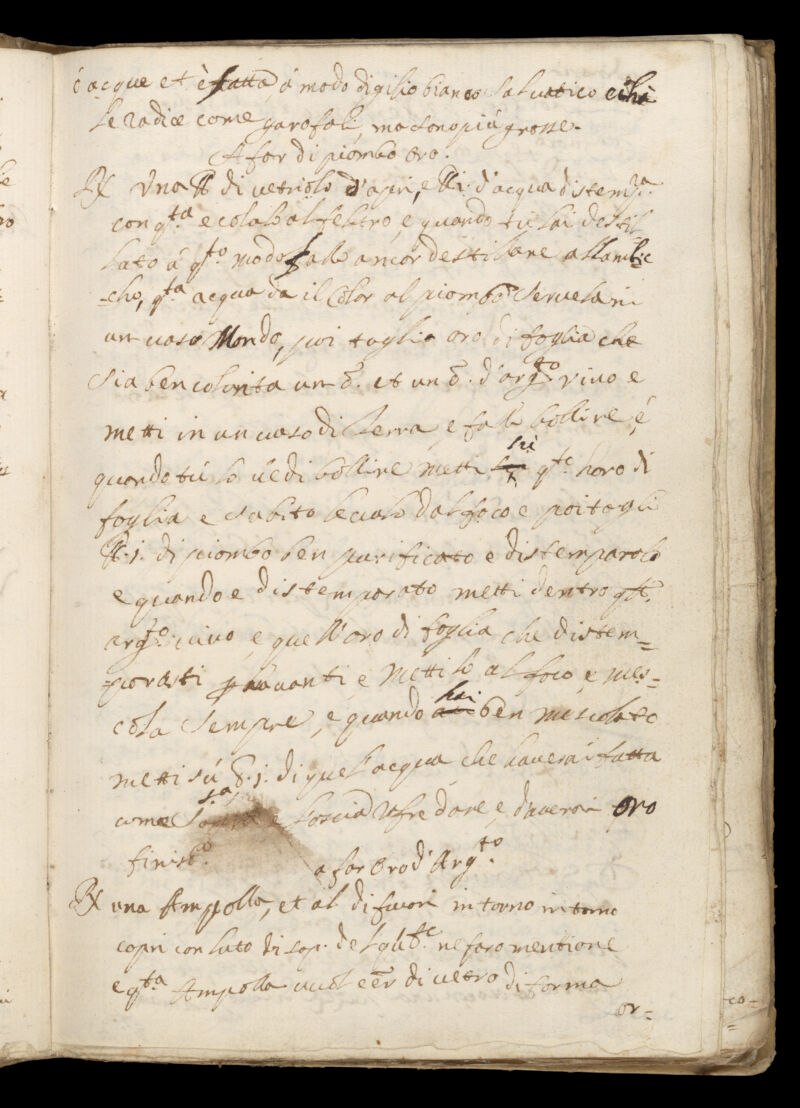 è acque et è fatta, á modo di giglio bianco salvatico e ha
le radice come garofali, ma sono più grosse.
A far di piombo oro.
℞ Una ℔ di vetriolo d'apri, e ℔ i. d'acqua distemp.ra
con q.ta e colalo al feltro, e quando tu l'ai destil-
lato á q.to modo fallo ancor destillare a llambic-
-cho, q.ta acqua da il Color al piombo servela in
un vaso Mondo, poi toglie oro di foglia che
sia ben colorita un ℥. et un ℥. d'arg.to vivo e
metti in un vaso di terra, e fallo bollire, é
quando tú lo vedi bollire metti sú q.to horo di
foglia e subito levalo dal foco e poi togli
℔.i. di piombo ben purificato e distemparolo
e quando e distemparato metti dentro q.to
arg.to vivo e quell'oro di foglia che distem-
-porasti avanti e mettilo al foco, e mes-
cola sempre, e quando hai ben mescolato
metti sú ℥.i. di quel'acqua che haverai fatta
come s.a e lascia Refredare, e d'averai oro
finiss.o
a far oro d'Arg.to
℞ una Ampolla, et al di fuori intorno intorno
copri con luto di sop. del qua.le ne faro mentione
e q.ta Ampolla vuol eēr di vetro di forma
or-